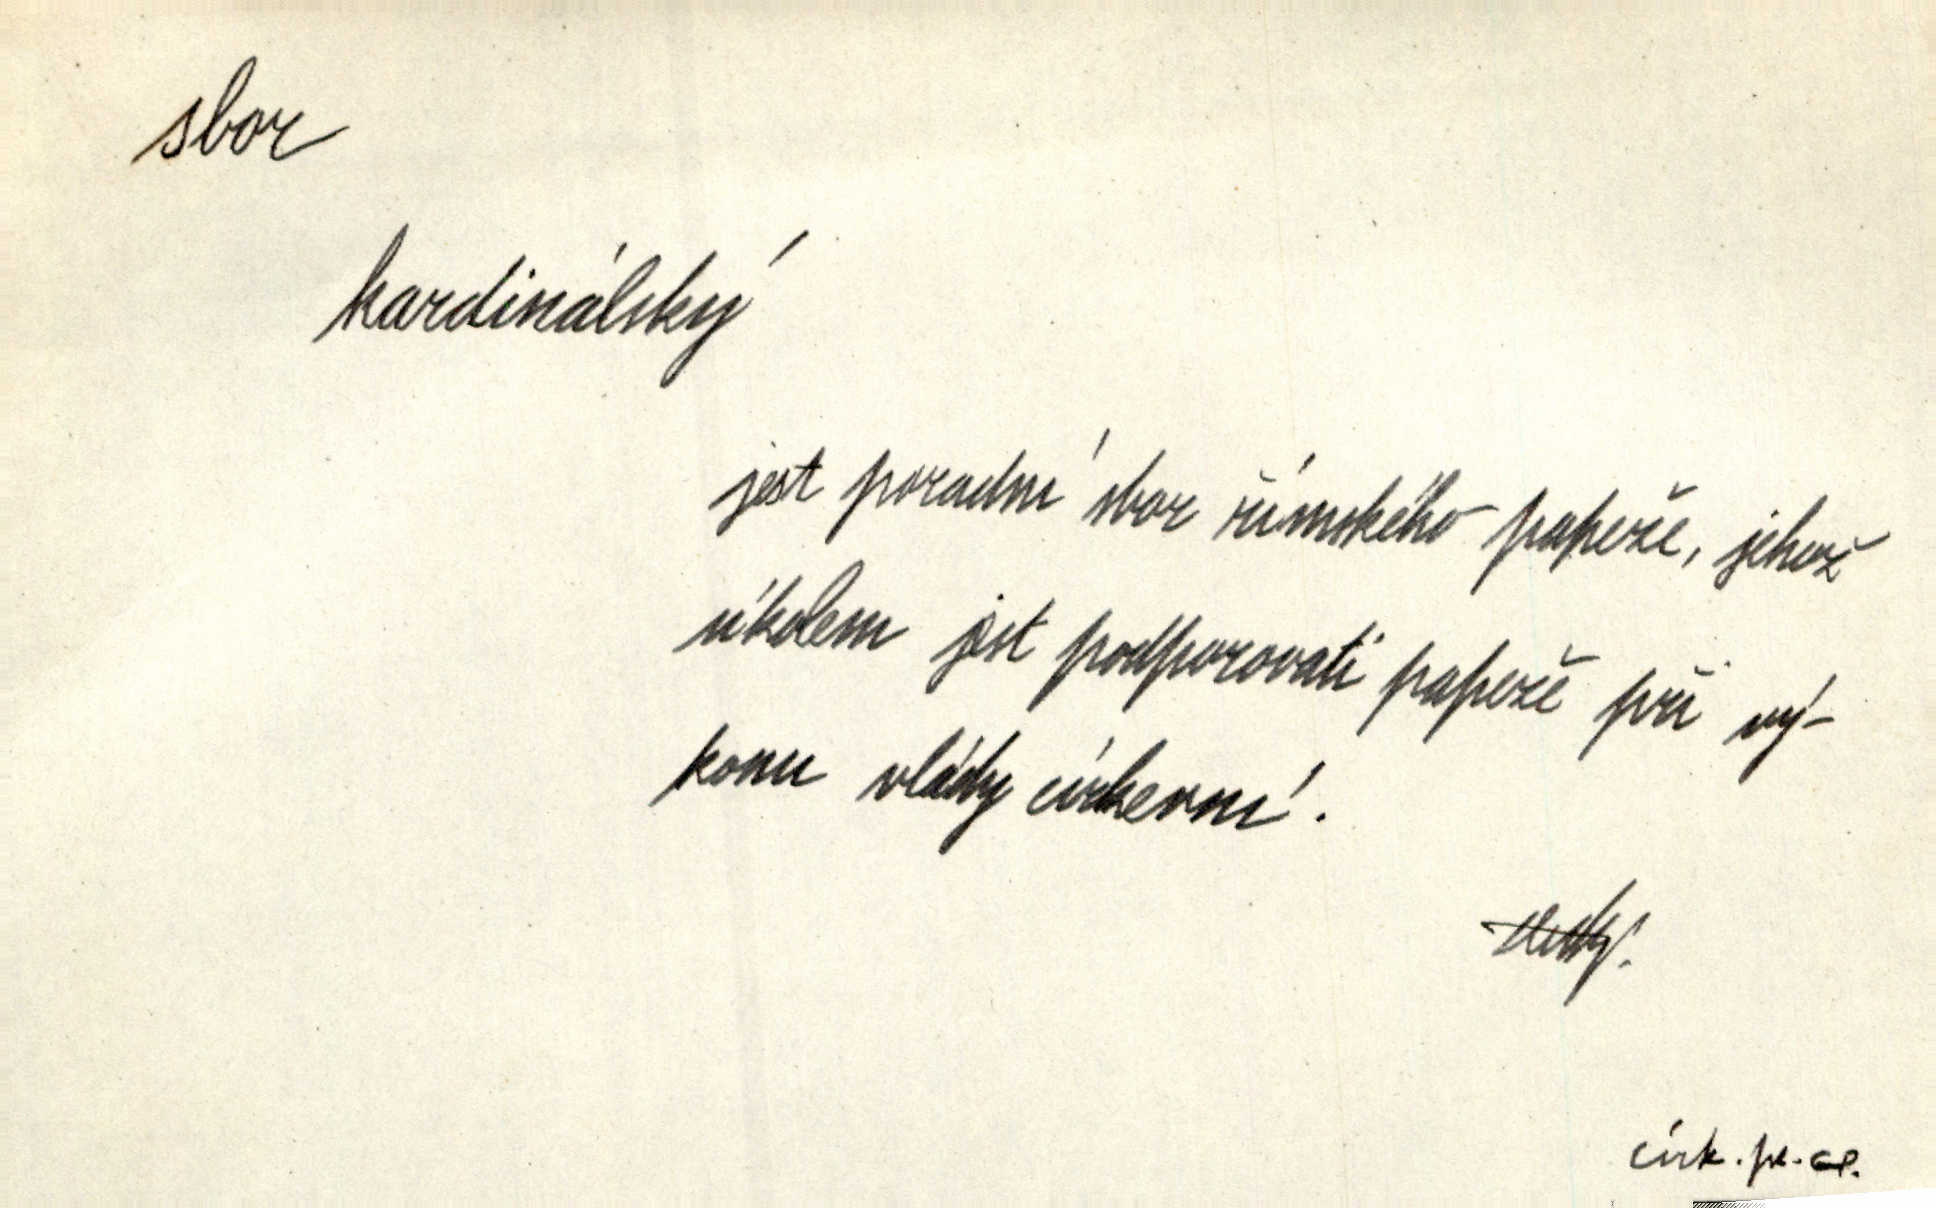 sbor
kardinálský
jest poradní sbor římského papeže, jehož
úkolem jest podporovati papeže při vý-
konu vlády církevní.
círk. pr.